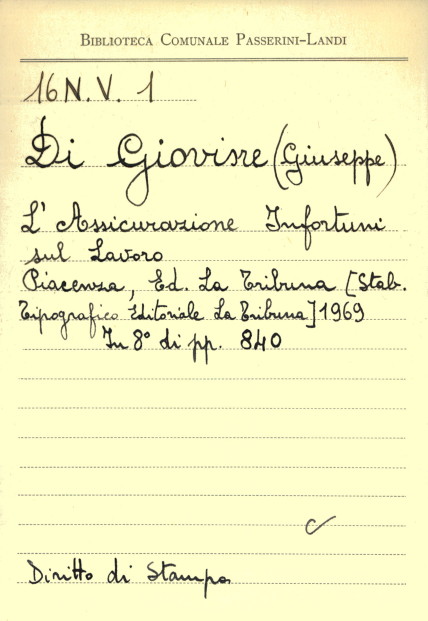 BIBLIOTECA COMUNALE PASSERINI-LANDI
16 N. V. 1
Di Giovine (Giuseppe)
L' Assicurazione Infortuni
sul Lavoro
Piacenza, Ed. La Tribuna [Stab.
Tipografico Editoriale La Tribuna] 1969
In 8° di pp. 840
Diritto di Stampa